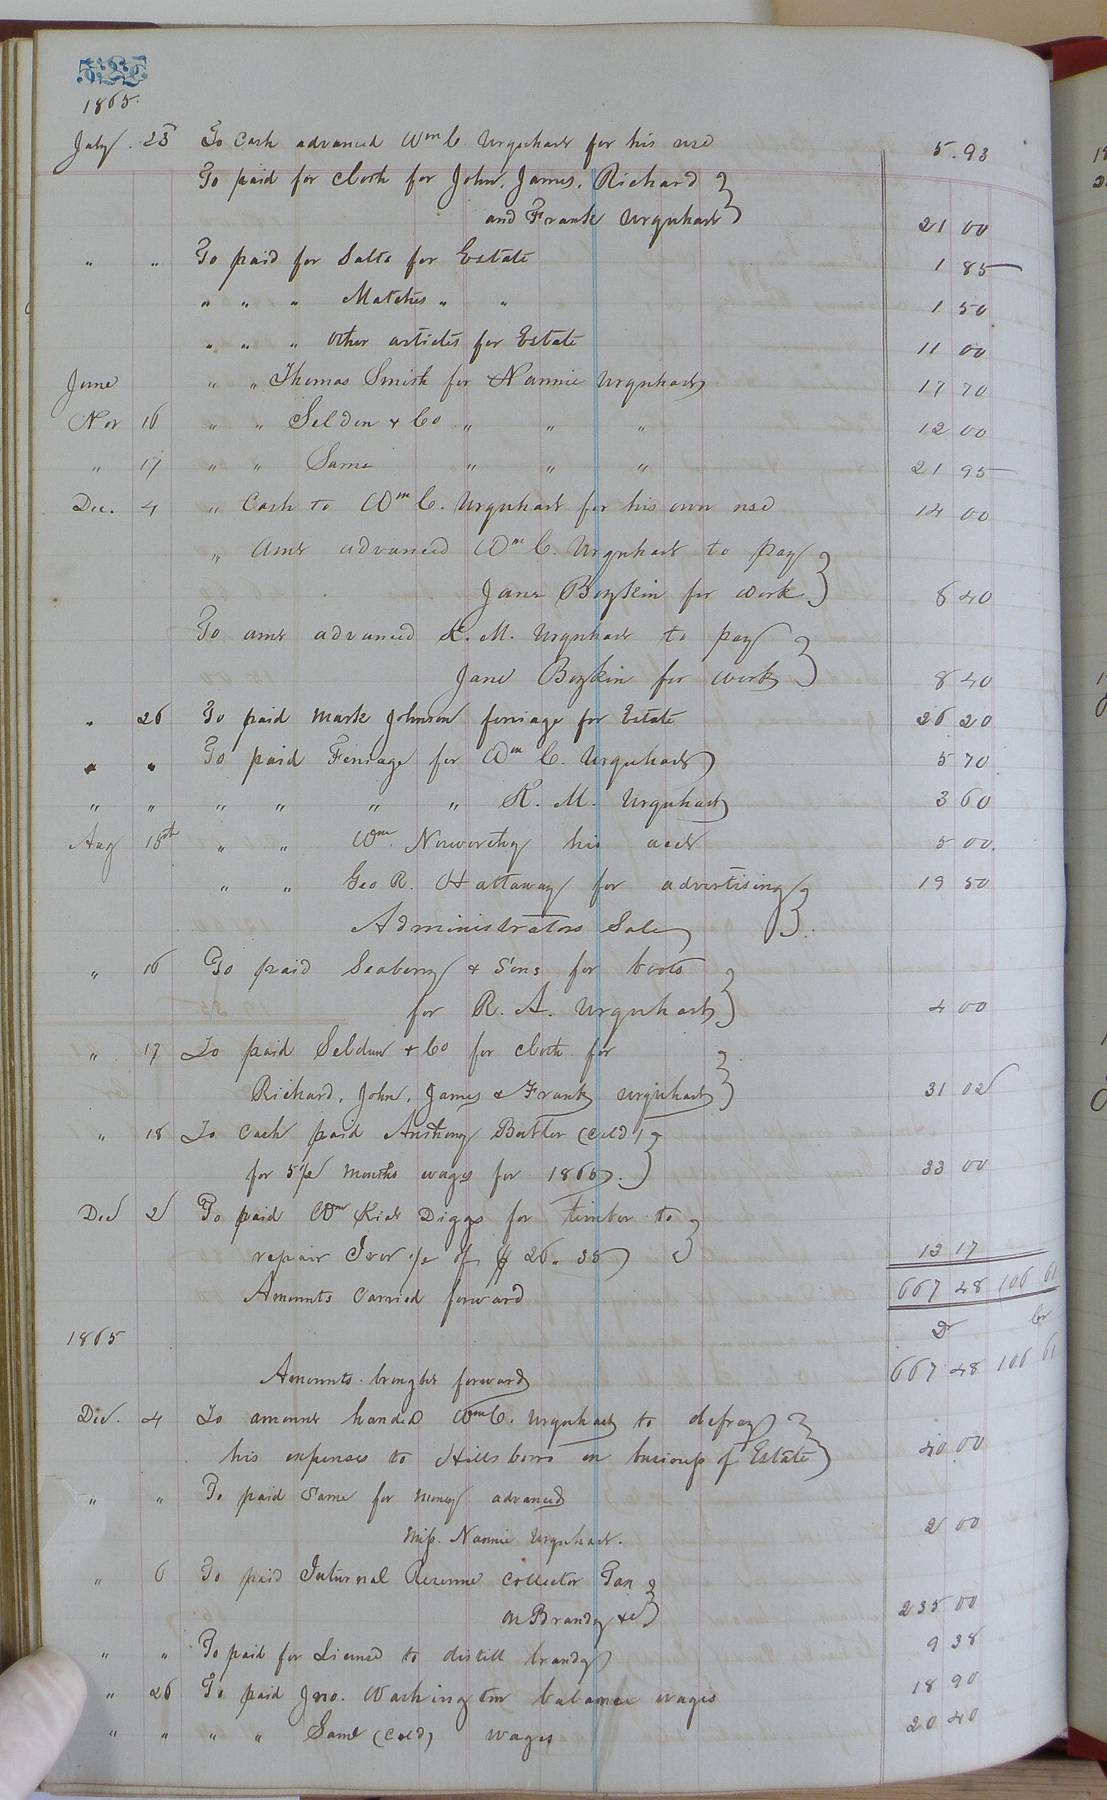 1865.
July 25 To Cash advanced Wm C. Urquhart for his use 5.93
To paid for cloth for John, James, Richard
and Frank Urquhart 21 00
" " To paid for Salts for Estate 1 85
" " " Matches " " 1 50
" " " other articles for Estate 11 00
June " " Thomas Smith for Nannie Urquhart 17 70
Nov 16 " " Selden & Co " " " 12 00
" 17 " " Same " " " 21 95
Dec. 4 " Cash to Wm C. Urquhart for his own use 14 00
" Amt advanced Wm C. Urquhart to pay
Jane Boykin for work 8 40
To amt advanced R. M. Urquhart to pay
Jane Boykin for work 8 40
" 26 To paid Mark Johnson ferriage for Estate 26 20
" " To paid Ferriage for Wm C. Urquhart 5 70
" " " " " " R. M. Urquhart 3 60
Aug 15th " " Wm Norworthy his acct 5 00.
" " Geo R. Hattaway for advertising 19 50
Administrators Sale
" 16 To paid Seabury & Sons for boots
for R. A. Urquhart 4 00
" 17 To paid Selden & Co for cloth for
Richard, John, James & Frank Urquhart 31 02
" 18 To Cash paid Anthony Butler (cold)
for 5½ months wages for 1865. 33 00
Dec 2 To paid Wm Diggs for timber to
repair ½ of $ 26.35 13 17
Amounts carried forward 667 48 106 61
1865 Dr Cr
Amounts brought forward 667 48 106 61
Dec. 4 To amount handed Wm C. Urquhart to defray
his expenses to Hillsboro on business of Estate 40 00
" " To paid Same for money advanced
Miss Nannie Urquhart. 2 00
" 6 To paid Internal Revenue Collector Tax
on Brandy &c 235 00
" " To paid for License to distill brandy 9 38
" 26 To paid Jno. Washington balance wages 18 90
" " " " Same (cold) wages 20 40